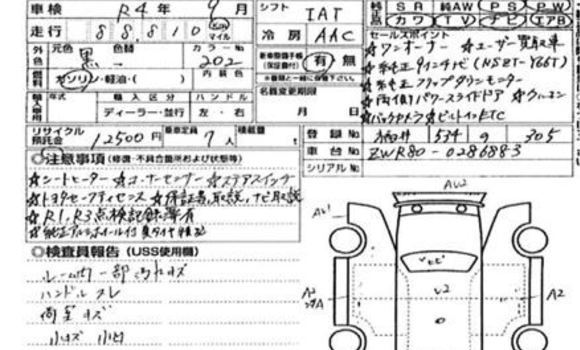 車検 R4年 9月
シフト IAT
純正 SR 純AW PS PW
カワ TV ナビ エアB
走行 88,810 km マイル
冷房 AAC
セールスポイント
外色 元色 黒 色替 カラーNo 202
新車整備手帳(保証書付) 有 無
☆ワンオーナー ☆ユーザー買取車
☆純正9インチナビ(NSZT-Y66T)
燃料 ガソリン・軽油・( ) 内装色
☆純正フリップダウンモニター
輸入車用 年式 輸入区分 ハンドル
名義変更期限
☆両側パワースライドドア
ディーラー・並行 左・右
月 日
バックカメラ ☆ビルトインETC
リサイクル預託金 12500円 乗車定員 7人 積載量
登録No 534 305
車台No ZWR80-0286883
シリアルNo
◎注意事項(修復・不具合箇所および状態等)
☆シートヒーター ☆コーナーセンサー ☆ステアスイッチ
☆トヨタセーフティセンス ☆保証書、取説、ナビ取説
☆R1、R3点検記録簿有
☆純正アルミホイール付
◎検査員報告(USS使用欄)
ルーム内一部汚れキズ
ハンドルスレ
荷室キズ
小キズ 小凹
AU2
A1
A2
U2
A2